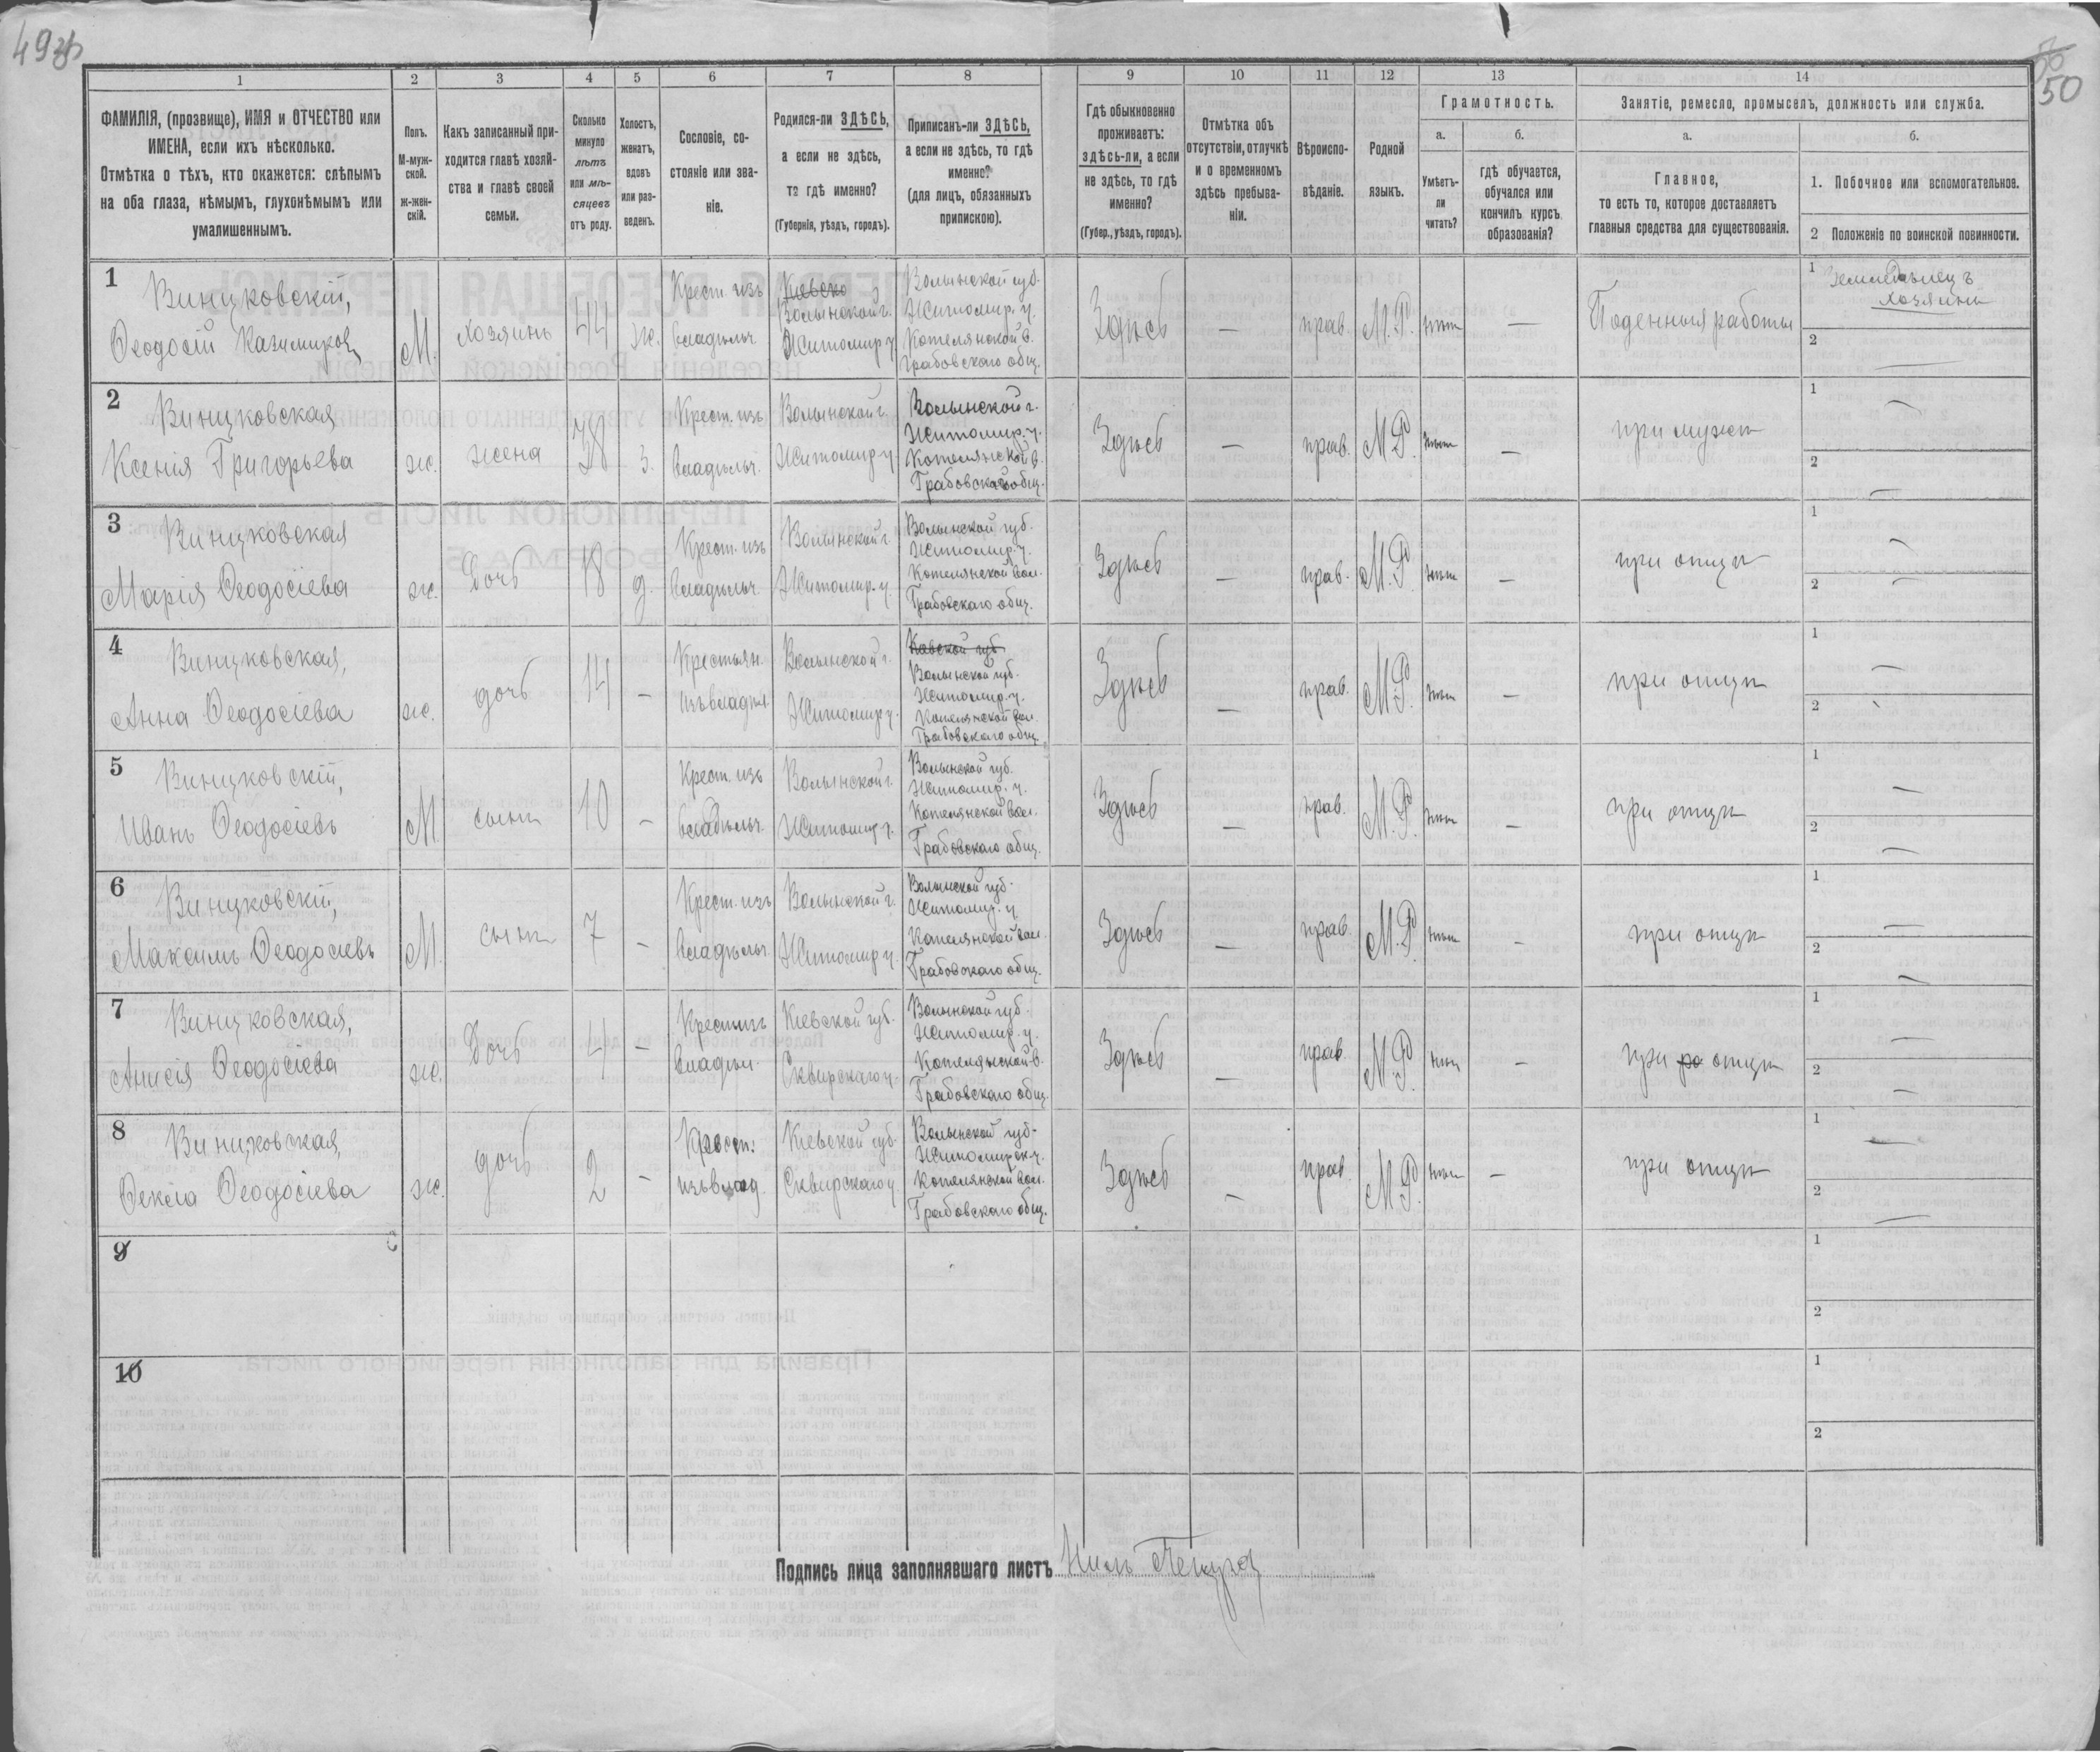 49 об
50
1 2 3 4 5 6 7 8 9 10 11 12 13 14
ФАМИЛІЯ, (прозвище), ИМЯ и ОТЧЕСТВО или
ИМЕНА, если ихъ нѣсколько.
Отмѣтка о тѣхъ, кто окажется: слѣпымъ
на оба глаза, нѣмымъ, глухонѣмымъ или
умалишеннымъ.
Полъ.
М-муж-
ской.
ж-жен-
скій.
Какъ записанный при-
ходится главѣ хозяй-
ства и главѣ своей
семьи.
Сколько
минуло
лѣтъ
или мѣ-
сяцевъ
отъ роду.
Холостъ,
женатъ,
вдовъ
или раз-
веденъ.
Сословіе, со-
стояніе или зва-
ніе.
Родился-ли ЗДѢСЬ,
а если не здѣсь,
то гдѣ именно?
(Губернія, уѣздъ, городъ).
Приписанъ-ли ЗДѢСЬ,
а если не здѣсь, то гдѣ
именно?
(для лицъ, обязанныхъ
припискою).
Гдѣ обыкновенно
проживаетъ:
здѣсь-ли, а если
не здѣсь, то гдѣ
именно?
(Губер., уѣздъ, городъ).
Отмѣтка объ
отсутствіи, отлучкѣ
и о временномъ
здѣсь пребыва-
ніи.
Вѣроиспо-
вѣданіе.
Родной
языкъ.
Грамотность.
а.
Умѣетъ-
ли
читать?
б.
гдѣ обучается,
обучался или
кончилъ курсъ
образованія?
Занятіе, ремесло, промыселъ, должность или служба.
а.
Главное,
то есть то, которое доставляетъ
главныя средства для существованія.
б.
1. Побочное или вспомогательное.
2 Положеніе по воинской повинности.
1
Винцковскій,
Ѳеодосій Казимировъ
М.
хозяинъ
44
ж.
Крест. изъ
владѣльч.
Кіевско
Волынской г.
Житомир у.
Волынской губ.
Житомир. у.
Котелянской в.
Грабовского общ.
Здѣсь
—
прав.
М.Р.
нѣтъ
—
Поденныя работы
1 Земледѣлецъ
хозяинъ
2 —
2
Винцковская
Ксенія Григорьева
ж.
жена
38
з.
Крест. изъ
владѣльч.
Волынской г.
Житомир у.
Волынской г.
Житомир. у.
Котелянской в.
Грабовского общ.
Здѣсь
—
прав.
М Р
нѣтъ
—
при мужѣ
1 —
2 —
3
Винцковская
Марія Ѳеодосіева
ж.
Дочь
18
д.
Крест. изъ
владѣльч.
Волынской г.
Житомир. у.
Волынской губ.
Житомир. у.
Котелянской вол.
Грабовскаго общ.
Здѣсь
—
прав.
М.Р
нѣтъ
—
при отцѣ
1 —
2 —
4
Винцковская,
Анна Ѳеодосіева
ж.
дочь
14
—
Крестьян.
изъ владѣл.
Волынской г.
Житомир у.
Волынской губ.
Житомир. у.
Котелянской вол.
Грабовскаго общ.
Здѣсь
—
прав.
М.Р.
нѣтъ
—
при отцѣ
1 —
2
5
Винцковскій,
Иванъ Ѳеодосіевъ
М
сынъ
10
—
Крест. изъ
владѣльч.
Волынской г.
Житомир у.
Волынской губ.
Житомир. у.
Котелянской вол.
Грабовскаго общ.
Здѣсь
—
прав.
М.Р.
нѣтъ
—
при отцѣ
1 —
2 —
6
Винцковскій,
Максимъ Ѳеодосіевъ
М
сынъ
7
—
Крест. изъ
владѣльч.
Волынской г.
Житомир у.
Волынской губ.
Житомир. у
Котелянской вол.
Грабовскаго общ.
Здѣсь
—
прав.
М.Р
нѣтъ
—
при отцѣ
1 —
2 —
7
Винцковская,
Анисія Ѳеодосіева
ж.
Дочь
4
—
Крест изъ
владѣл.
Кіевской губ.
Сквирскаго у.
Волынской губ.
Житомир. у.
Котелянской в.
Грабовскаго общ.
Здѣсь
—
прав.
М.Р.
нѣтъ
—
при ро отцѣ
1 —
2 —
8
Винцковская,
Ѳекла Ѳеодосіева
ж.
дочь
2
—
Крест.
изъ влад.
Кіевской губ.
Сквирскаго у.
Волынской губ.
Житомирск. у.
Котелянской вол.
Грабовскаго общ.
Здѣсь
—
прав.
М Р.
нѣтъ
—
при отцѣ
1 —
2 —
9
1
2
10
1
2
Подпись лица заполнявшаго листъ